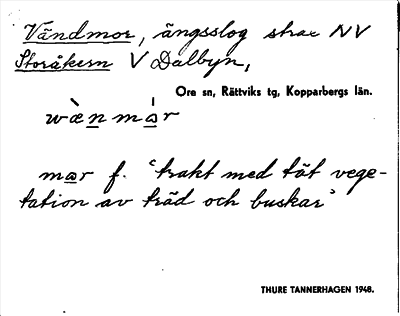 Vändmor, ängsslog strax NV
Storåkern V Dalbyn,
Ore sn, Rättviks tg, Kopparbergs län.
wὲnmàr
mar f. 'trakt med tät vege-
tation av träd och buskar'
THURE TANNERHAGEN 1948.